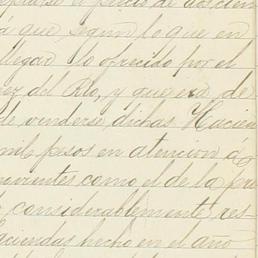 precio de
á que segun lo que en
llegar lo ofrecido por el
ez del Rio, y que era de
de venderse dichas Hacien
mil pesos en atencion á
como el de la pre
considerablemente, res
aciendas hecho en el año